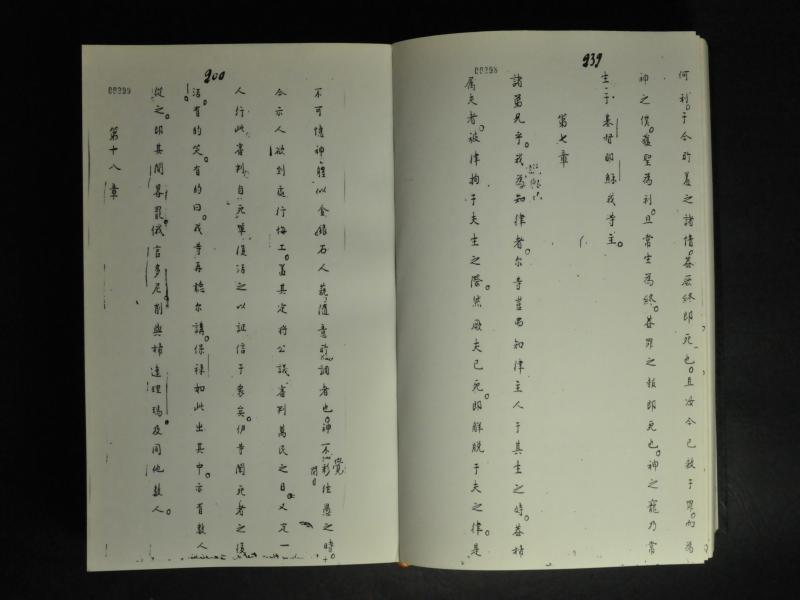 939
00298
何利于今所羞之諸情。蓋厥終即死也。且汝今已救于罪。而為
神之僕。獲聖為利。且常生為終。蓋罪之報即死也。神之寵乃常
生。于基督耶穌我等主。
第七章
諸弟兄乎。我為知律者。尔等豈不知律主人于其生之時。蓋婦
属夫者。被律拘于夫生之際。然厥夫已死。即觧脱于夫之律。是
200
00299
不可憶神體似金銀石人藝隨意所調者也。神不彰往愚之時。
今示人欲到處行悔工。盖其定将公議審判萬民之日。又定一
人行此審判。自死單復活之以証信于衆矣。伊等聞死者之復
活。有的笑。有的曰。我等再聽尔講。保祿如此出其中。亦有数人
從之。即其間畧罷俄。言多尼削與婦達理瑪及同他数人。
第十八章